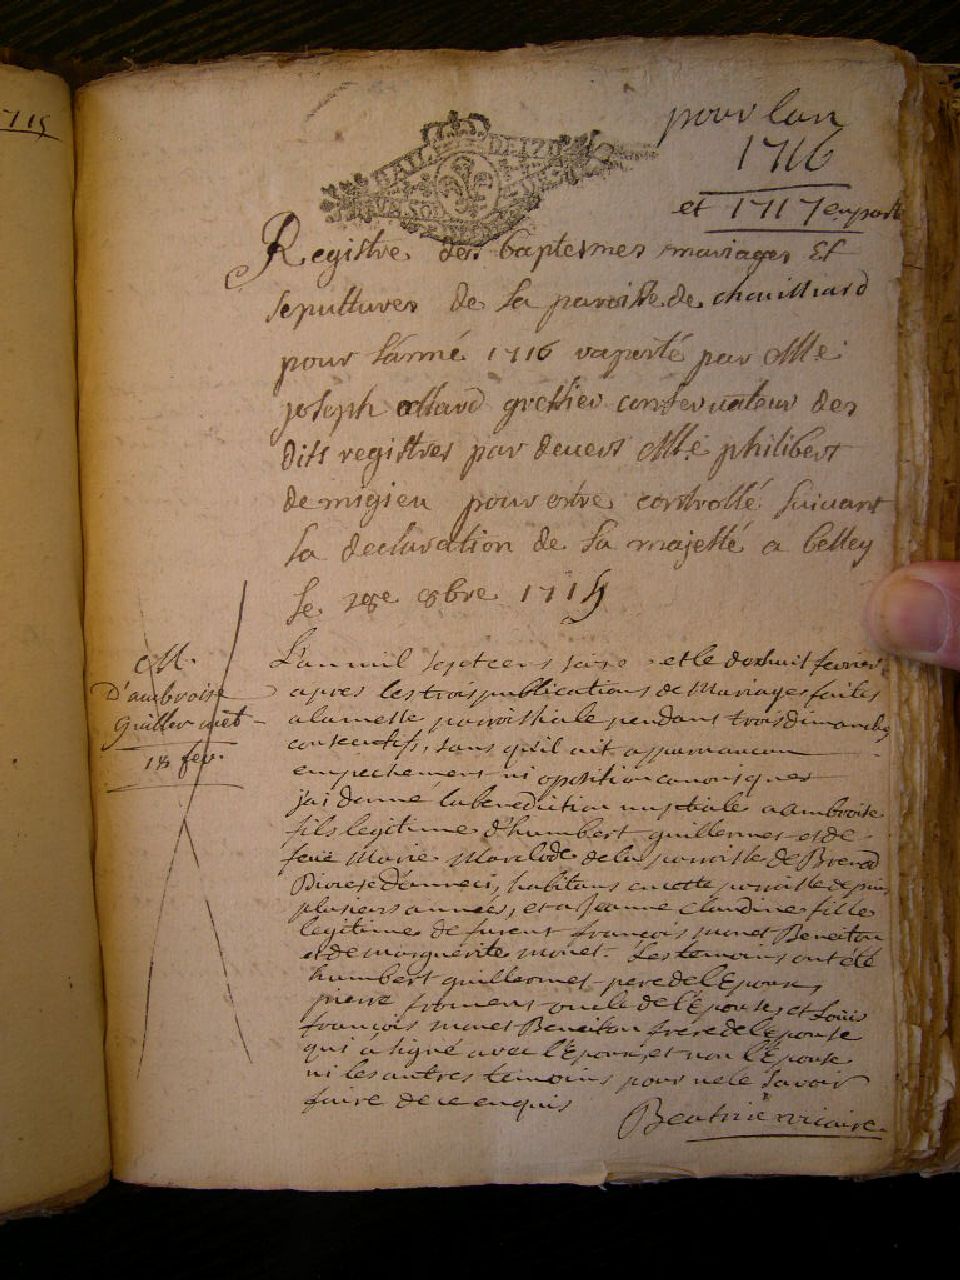 1715
pour lan
1716
et 1717 en part
BAIL DE 170
UN SOL
Registre des baptesmes mariages Et
sepultures de la paroisse de chouilliard
pour l'anné 1716 raporté par Mre
joseph allard greffier conservateur des
dits registres par devers Mre philibert
de migieu pour estre controllé suivant
la declaration de sa majesté a belley
le 8bre 1715
M.
D'ambroise
Guillermet
18 fev.
L'an mil sept cens seise et le dixhuit fevrier
apres les trois publications de Mariages faites
a la messe parroissiale pendant trois dimanches
consecutifs, sans qu'il ait apparu aucun
empechement ni oposition canoniques
j'ai donné la benediction nuptiale a ambroise
fils legitime d'humbert guillermet et de
feüe Marie de la parroisse de Brenod
Diocese d'anneci, habitant en cette parroisse depuis
plusieurs années, et a Jeanne claudine fille
legitime de furent françois monet Beneiton
et de marguerite monet. Les temoins ont été
humbert guillermet pere de l'Epoux,
pierre froment oncle de l'Epouse, et Louis
françois monet Beneiton frere de l'epouse
qui a signé avec l'Epoux, et non l'Epouse
ni les autres temoins pour ne le savoir
faire de ce enquis
Beatrix vicaire